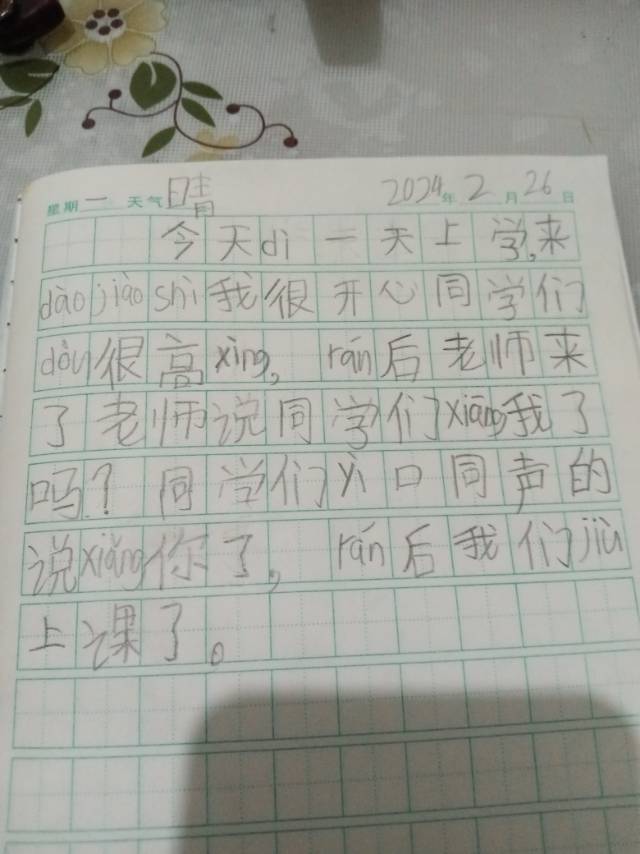 星期一 天气晴 2024年2月26日
今天dì一天上学,来
dào jiào shì我很开心同学们
dōu很高xìng, rán后老师来
了老师说同学们xiǎng我了
吗?同学们yì口同声的
说xiǎng你了, rán后我们jiù
上课了。